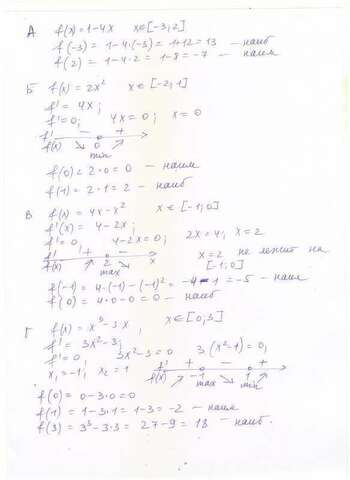 А. f(x) = 1 - 4x x∈[-3; 2]
f(-3) = 1 - 4·(-3) = 1+12 = 13 — наиб
f(2) = 1 - 4·2 = 1 - 8 = -7 — наим
Б f(x) = 2x² x∈[-2; 1]
f' = 4x;
f' = 0; 4x = 0; x = 0
f' − +
f(x) ↘ 0 ↗
min
f(0) = 2·0 = 0 — наим
f(1) = 2·1 = 2 — наиб
В. f(x) = 4x - x² x∈[-1; 0]
f'(x) = 4 - 2x;
f' = 0; 4 - 2x = 0; 2x = 4; x = 2
f' + − x = 2 не лежит на
f(x) ↗ 2 ↘ x [-1; 0]
max
f(-1) = 4·(-1) - (-1)² = -4 - 1 = -5 — наим
f(0) = 4·0 - 0 = 0 — наиб
Г f(x) = x³ - 3x, x∈[0; 3]
f' = 3x² - 3;
f' = 0; 3x² - 3 = 0 3(x² - 1) = 0;
x₁ = -1; x₂ = 1 f' + − +
f(x) ↗ -1 ↘ 1 ↗
max min
f(0) = 0 - 3·0 = 0
f(1) = 1 - 3·1 = 1 - 3 = -2 — наим
f(3) = 3³ - 3·3 = 27 - 9 = 18 — наиб.